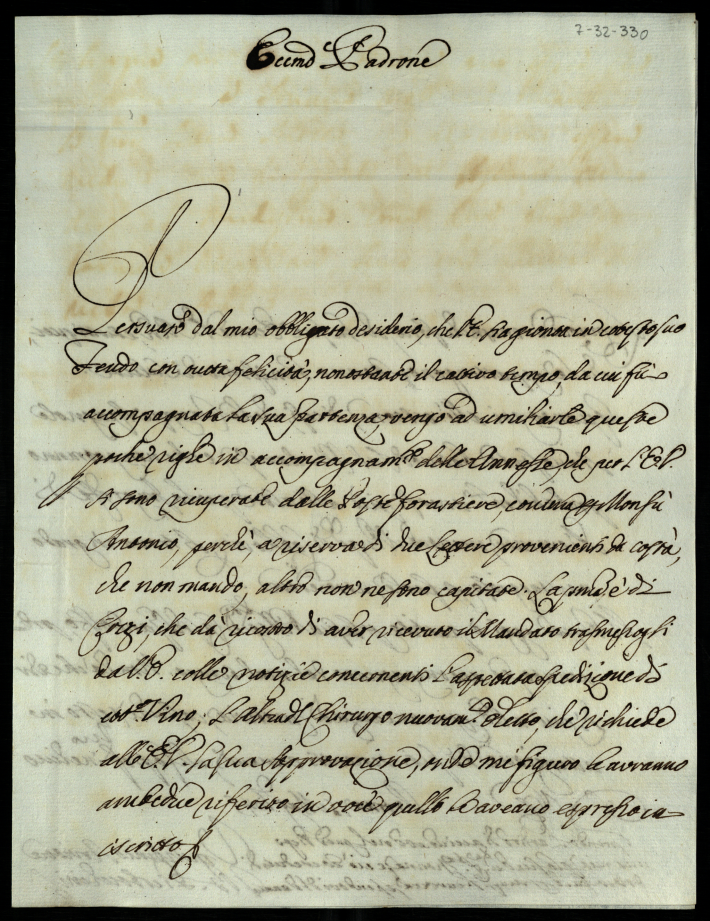 7-32-330
Eccmo Pe Padrone
Persuaso dal mio obbligato desiderio, che V.E. sia gionta in cotesto suo
Feudo con tutta felicità, nonostante il cattivo tempo, da cui fu
accompagnata la sua partenza, vengo ad umiliarle queste
poche righe in accompagnamto delle Annesse, che per V.E.
si sono ricuperate dalle Poste forastiere, con una Monsù
Antonio, perchè, a riserva di due Lettere provenienti da costà,
che non mando, altro non ne sono capitate. La prima è di
che dà ricontro di aver ricevuto il Mandato trasmessogli
da V.E. colle notizie concernenti l'aspettata spedizione di
cotto Vino; L'altra del Chirurgo nuovamte eletto, che richiede
all'E.V. la sua Approvazione, onde mi figuro le avranno
ambedue riferito in voce quello le aveano espresso in
iscritto